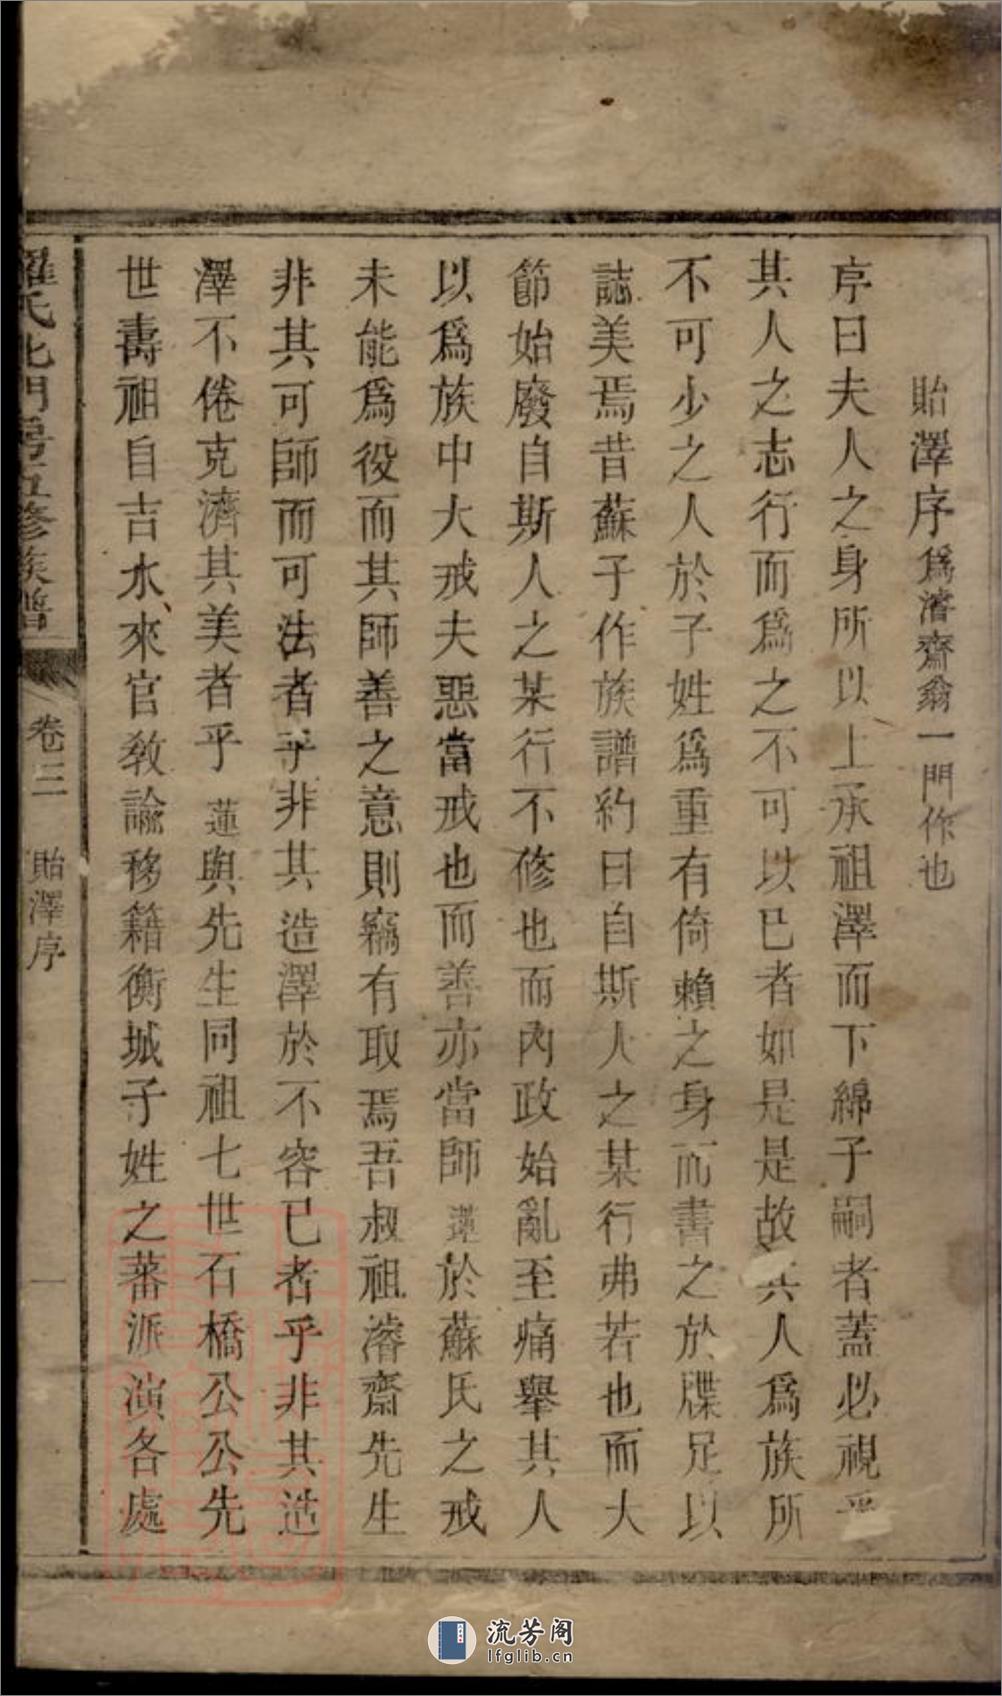 貽澤序為濬齋翁一門作也
序曰夫人之身所以上承祖澤而下綿子嗣者蓋必視乎
其人之志行而為之不可以已者如是是故其人為族所
不可少之人於子姓為重有倚賴之身而書之於牒足以
誌美焉昔蘇子作族譜約曰自斯人之某行弗若也而大
節始廢自斯人之某行不修也而內政始亂至痛舉其人
以為族中大戒夫惡當戒也而善亦當師蓮於蘇氏之戒
未能為役而其師善之意則竊有取焉吾叔祖濬齋先生
非其可師而可法者乎非其造澤於不容已者乎非其造
澤不倦克濟其美者乎蓮與先生同祖七世石橋公公先
世壽祖自吉水來官教諭移籍衡城子姓之蕃派演各處
羅氏北門房五修族譜
卷三 貽澤序 一
流芳阁
lfglib.cn